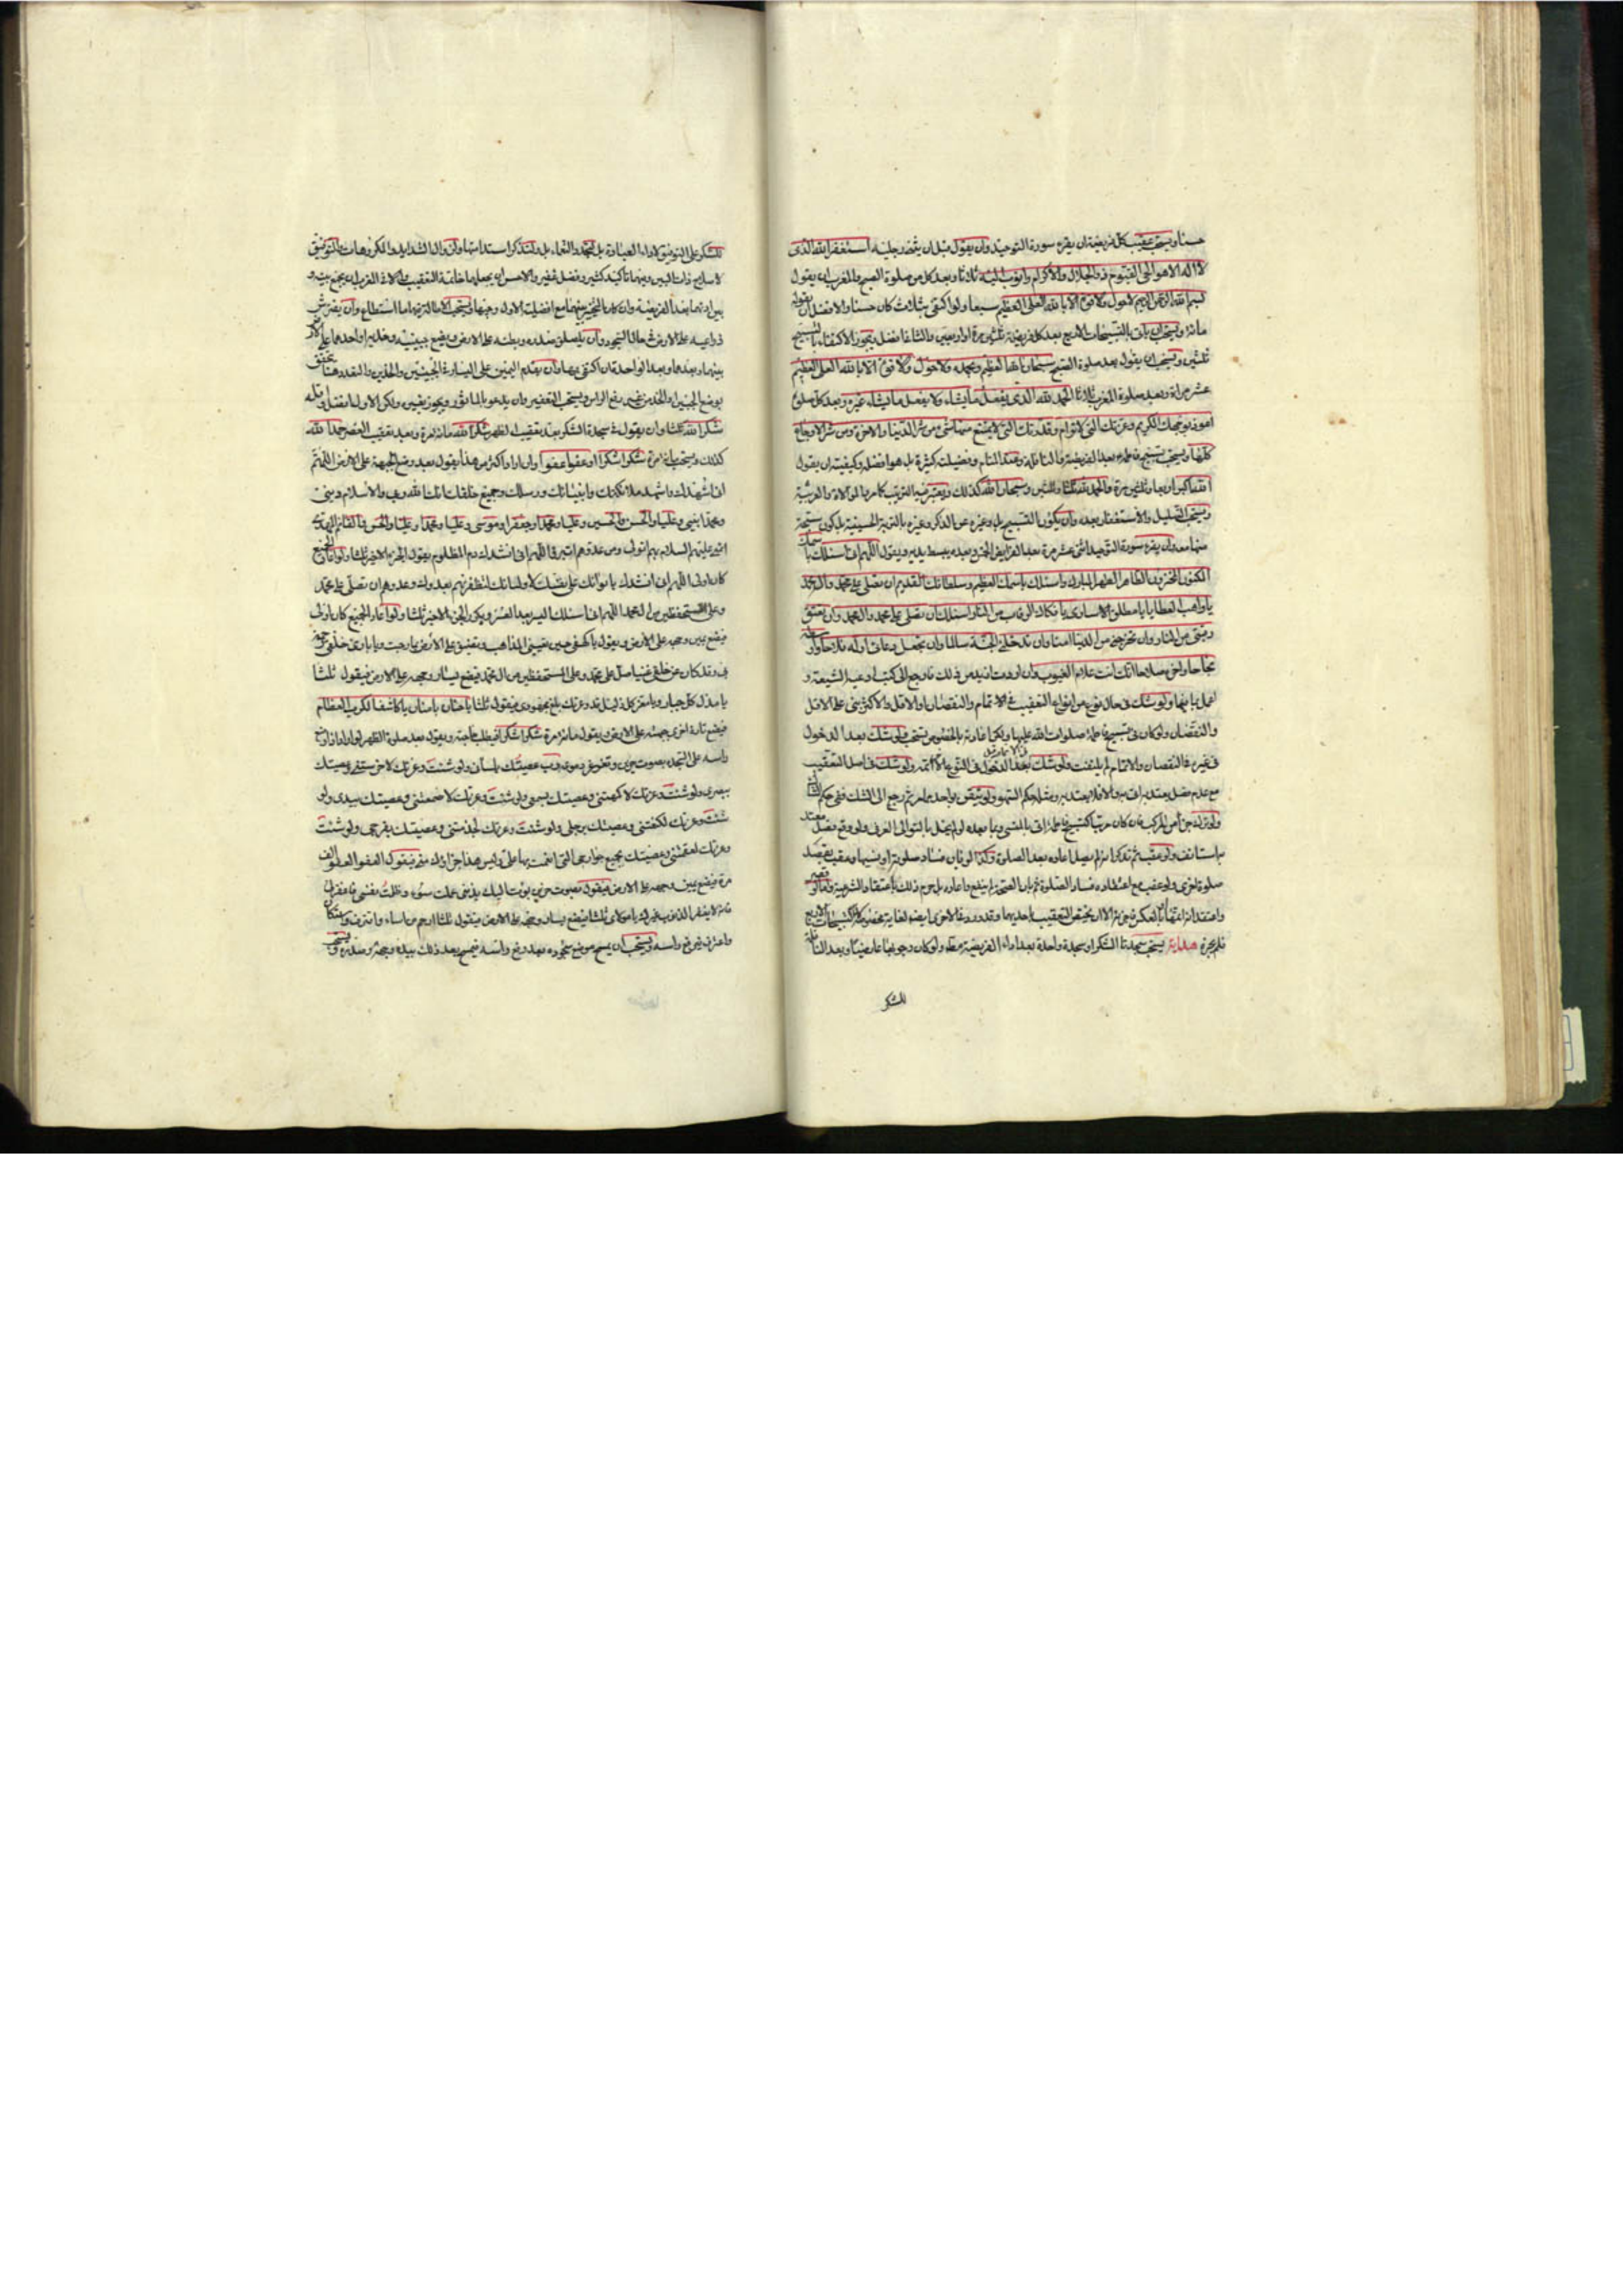 حسنا ويستحب عقيب كل فريضة ان يقرء سورة التوحيد وان يقول قبل ان يثنى رجليه استغفر الله الذى
لا اله الا هو الحى القيوم ذو الجلال والاكرام واتوب اليه ثلاثا وبعد كل من صلوة الصبح والمغرب ان يقول
بسم الله الرحمن الرحيم لا حول ولا قوة الا بالله العلى العظيم سبعا ولو اكتفى بثلاث كان حسنا والافضل ان يقوله
مائة ويستحب ان ياتى بالتسبيحات الاربع بعد كل فريضة ثلثين مرة او اربعين والثانى افضل ويجوز الاكتفاء بالتسبيح
ثلثين ويستحب ان يقول بعد صلوة الصبح سبحان الله العظيم وبحمده ولا حول ولا قوة الا بالله العلى العظيم
عشر مرات وبعد صلوة المغرب ثلاثا الحمد لله الذى يفعل ما يشاء ولا يفعل ما يشاء غيره وبعد كل صلوة
اعوذ بوجهك الكريم وعزتك التى لا ترام وقدرتك التى لا يمتنع منها شئ من شر الدنيا والاخرة ومن شر الاوجاع
كلها ويستحب تسبيح فاطمة بعد الفريضة والنافلة وعند المنام وفضيلته كثيرة بل هو افضله وكيفيته ان يقول
الله اكبر اربعا وثلثين مرة والحمد لله ثلثا وثلثين وسبحان الله كذلك ويعتبر فيه الترتيب كما مر بالموالاة والعربية
ويستحب التهليل والاستغفار بعده وان يكون التسبيح بل وغيره من الذكر وغيره بالتربة الحسينية بل كون سبحة
منها معه وان يقرء سورة التوحيد اثنى عشر مرة بعد الفرايض الخمس وبعده يبسط يديه ويقول اللهم انى اسئلك باسمك
المكنون المخزون الطاهر الطهر المبارك واسئلك باسمك العظيم وسلطانك القديم ان تصلى على محمد وال محمد
يا واهب العطايا يا مطلق الاسارى يا فكاك الرقاب من النار اسئلك ان تصلى على محمد وال محمد وان تعتق
رقبتى من النار وان تخرجنى من الدنيا امنا وان تدخلنى الجنة سالما وان تجعل دعائى اوله فلاحا واوسطه
نجاحا واخره صلاحا انك انت علام الغيوب وان اردت ازيد من ذلك فارجع الى كتب ادعية الشيعة و
اعمل بما فيها ولو شك فى حال نوع من انواع التعقيب فى الاتمام والنقصان او الاقل والاكثر بنى على الاقل
والنقصان ولو كان فى تسبيح فاطمة صلوات الله عليها ولكن اعادته بالخصوص يستحب ولو شك بعد الدخول
فى غيره فى النقصان والاتمام لم يلتفت ولو شك بعد الدخول فى الثانى ولو شك فى اصل التعقيب
مع عدم فصل يعتد به اتى به والا فلا يعتد به ومثله حكم السهو ولو تيقن واحدا ثم رجع الى الشك ففى حكم
ولو ترك جزء من المركب فان كان مرتبا كتسبيح فاطمة اتى بالمنسى وما بعده لو لم يخل بالتوالى العرفى ولو وقع فصل معتد
به استانف ولو عقب ثم تذكر انه لم يصل اعاده بعد الصلوة وكذا لو بان فساد صلوته او نسيها وعقب بقصد
صلوة اخرى ولو عقب مع اعتقاده فساد الصلوة ثم بان الصحة لم ينفع واعاده بل حرم ذلك باعتقاد الشرعية
واعتقد انه اتمها ثم انعكس فى
فلم يجزه هداية يستحب سجدتا الشكر او سجدة واحدة بعد اداء الفريضة مطلقا ولو كان وجوبها عارضيا وبعد النافلة
للشكر
للشكر على التوفيق لاداء العبادة بل لتجدد النعماء بل ولتذكر استدامتها ولزوال الشدايد والمكروهات وللتوفيق
لاصلاح ذات البين وفيها تاكيد كثير وفضل غفير والاحسن ان يجعلها خاتمة التعقيب والا فى المغرب ان يجمع بينه و
بين
ذراعيه على الارض فى حال السجود وان يلصق صدره وبطنه على الارض ويضع جبينيه وخديه او احدهما على الارض
بينهما وبعدها وبعد الواحدة ان اكتفى بها وان يقدم اليمين على اليسار فى الجبينين والخدين والتعدد هنا يتحقق
بوضع الجبين او الخد من غير رفع الراس ويستحب التعفير وان يدعو بالماثور ويجوز بغيره ولكن الاول افضل واقله
شكرا لله ثلثا وان يقول فى سجدة الشكر بعد تعقيب الظهر شكرا لله مائة مرة وبعد تعقيب العصر حمدا لله
كذلك ويستحب مائة مرة شكرا شكرا او عفوا عفوا وان اراد اكثر من هذا يقول بعد وضع الجبهة على الارض اللهم
انى اشهدك واشهد ملائكتك وانبيائك ورسلك وجميع خلقك انك الله ربى والاسلام دينى
ومحمدا نبيى وعليا والحسن والحسين وعليا ومحمدا وجعفرا وموسى وعليا ومحمدا وعليا والحسن والقائم المهدى
ائمتى عليهم السلام بهم اتولى ومن عدوهم اتبرء اللهم انى انشدك دم المظلوم يقول الجزء الاخير ثلثا ولو اعاد الجميع
كان اولى اللهم انى انشدك بايوائك على نفسك لاوليائك لتظفرنهم بعدوك وعدوهم ان تصلى على محمد
وعلى المستحفظين من ال محمد اللهم انى اسئلك اليسر بعد العسر ويكرر الجزء الاخير ثلثا ولو اعاد الجميع كان اولى
فيضع يمين وجهه على الارض ويقول يا كهفى حين تعيينى المذاهب وتضيق على الارض بما رحبت ويا بارئ خلقى رحمة
بى وقد كان عن خلقى غنيا صل على محمد وعلى المستحفظين من ال محمد فيضع يسار وجهه على الارض فيقول ثلثا
يا مذل كل جبار ويا معز كل ذليل قد وعزتك بلغ مجهودى فيقول ثلثا يا حنان يا منان يا كاشف الكرب العظام
فيضع تارة اخرى جبهته على الارض ويقول مائة مرة شكرا شكرا فيطلب حاجته ويقول بعد صلوة الظهر لو اراد
راسه على السجدة بصوت حزين وتغرغر دموع رب عصيتك بلسانى ولو شئت وعزتك لاخرستنى وعصيتك
ببصرى ولو شئت وعزتك لاكمهتنى وعصيتك بسمعى ولو شئت وعزتك لاصممتنى وعصيتك بيدى ولو
شئت وعزتك لكنعتنى وعصيتك برجلى ولو شئت وعزتك لجذمتنى وعصيتك بفرجى ولو شئت
وعزتك لعقمتنى وعصيتك بجميع جوارحى التى انعمت بها على وليس هذا جزاؤك منى فيقول العفو العفو الف
مرة فيضع يمين وجهه على الارض فيقول بصوت حزين بؤت اليك بذنبى عملت سوء وظلمت نفسى فاغفر لى
فانه لا يغفر الذنوب غيرك يا مولاى ثلثا فيضع يسار وجهه على الارض فيقول ثلثا ارحم من اساء واقترف واستكان
واعترف فيرفع راسه ويستحب ان يمسح موضع سجوده بعد رفع راسه فيمسح بعد ذلك بيده وجهه وصدره ويستحب